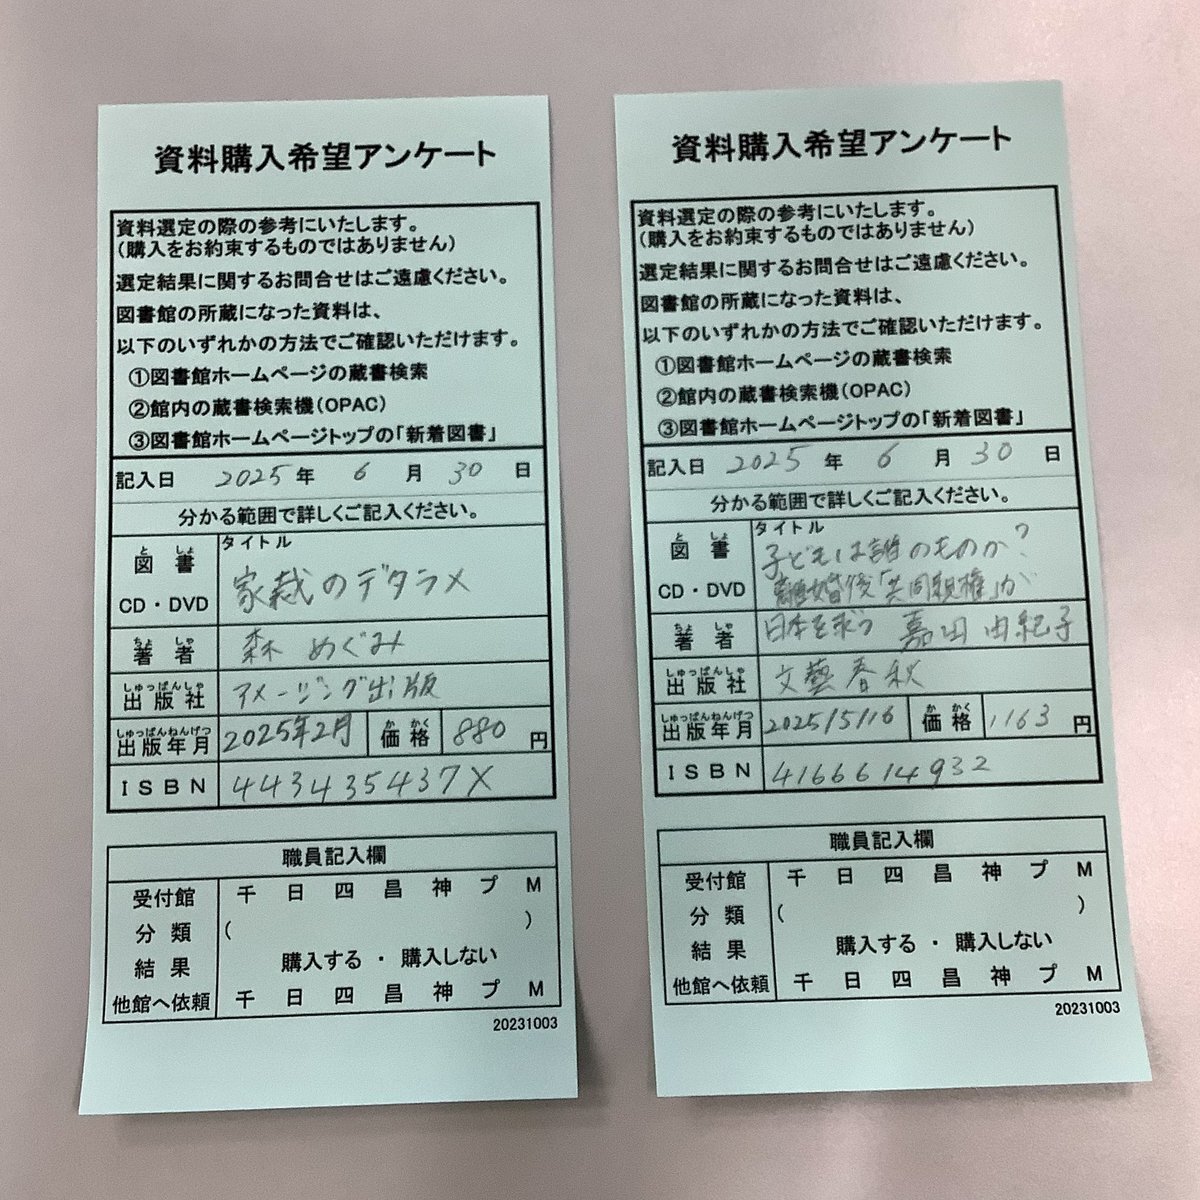 資料購入希望アンケート
資料選定の際の参考にいたします。
（購入をお約束するものではありません）
選定結果に関するお問合せはご遠慮ください。
図書館の所蔵になった資料は、
以下のいずれかの方法でご確認いただけます。
①図書館ホームページの蔵書検索
②館内の蔵書検索機（OPAC）
③図書館ホームページトップの「新着図書」
記入日 2025 年 6 月 30 日
分かる範囲で詳しくご記入ください。
と しょ
図 書
CD・DVD
タイトル
家裁のデタラメ
ちょ しゃ
著 者
森 めぐみ
しゅっぱんしゃ
出版社
アメージング出版
しゅっぱんねんげつ
出版年月
2025年2月
か かく
価 格
880 円
ISBN
443435437X
職員記入欄
受付館 千 日 四 昌 神 プ M
分 類 （ ）
結 果 購入する ・ 購入しない
他館へ依頼 千 日 四 昌 神 プ M
20231003
資料購入希望アンケート
資料選定の際の参考にいたします。
（購入をお約束するものではありません）
選定結果に関するお問合せはご遠慮ください。
図書館の所蔵になった資料は、
以下のいずれかの方法でご確認いただけます。
①図書館ホームページの蔵書検索
②館内の蔵書検索機（OPAC）
③図書館ホームページトップの「新着図書」
記入日 2025 年 6 月 30 日
分かる範囲で詳しくご記入ください。
と しょ
図 書
CD・DVD
タイトル
子どもは誰のものか?
離婚後「共同親権」が
ちょ しゃ
著 者
日本を救う 嘉田由紀子
しゅっぱんしゃ
出版社
文藝春秋
しゅっぱんねんげつ
出版年月
2025/5/16
か かく
価 格
1163 円
ISBN
4166614932
職員記入欄
受付館 千 日 四 昌 神 プ M
分 類 （ ）
結 果 購入する ・ 購入しない
他館へ依頼 千 日 四 昌 神 プ M
20231003